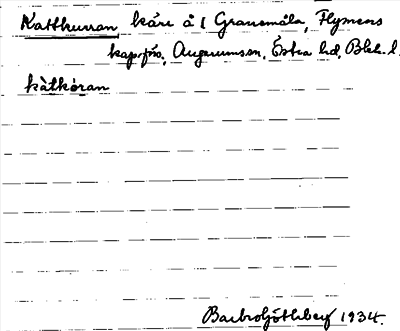 Katthurran kärr å 1 Granemåla, Flymens
kap.förs., Augerumssn, Östra hd, Blek. l.
kàtköran
Barbro Göthberg 1934.